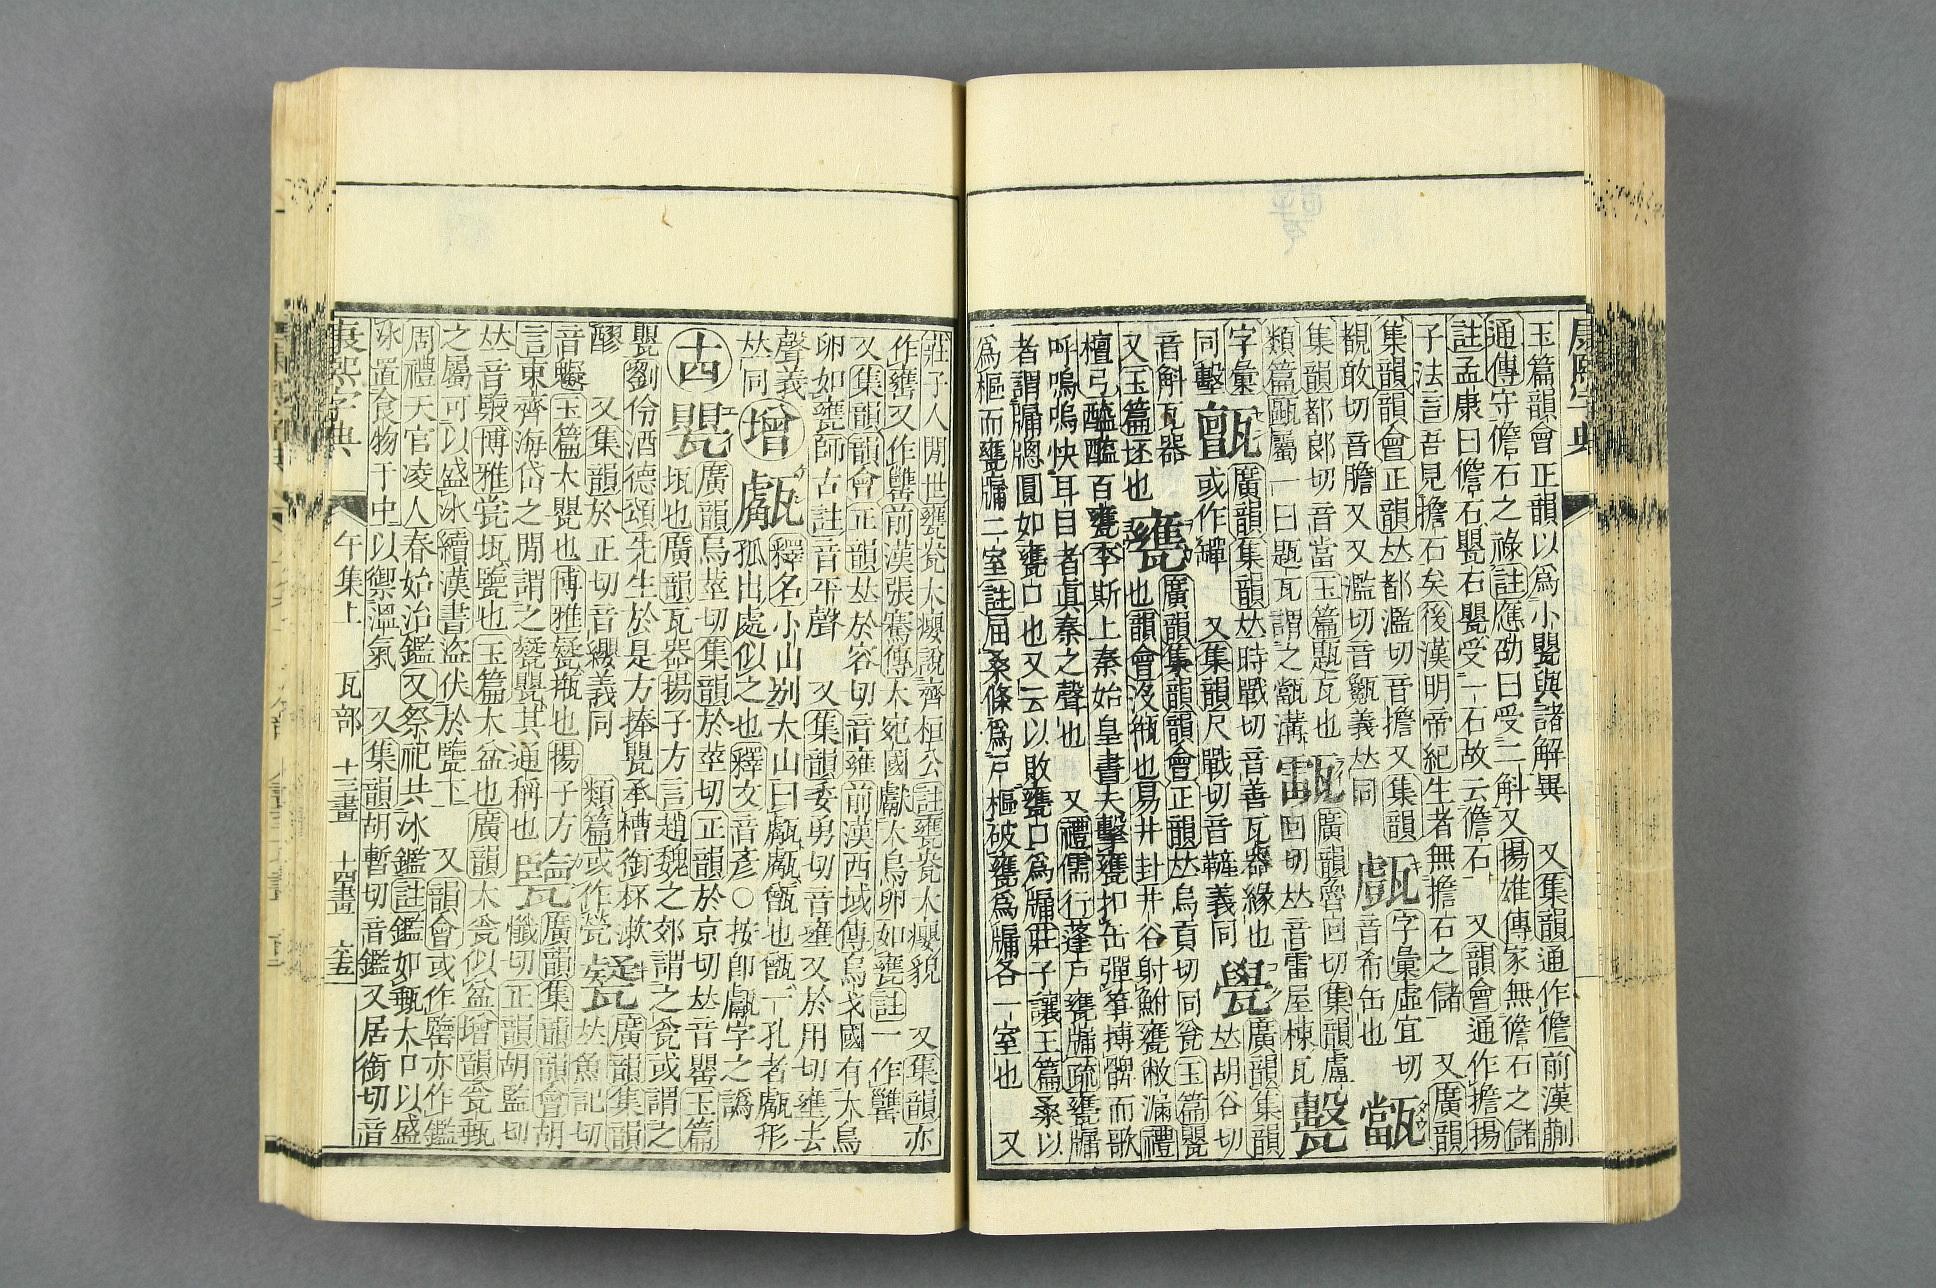 康熙字典
玉篇韻會正韻以爲小甖與諸解異 又集韻通作儋前漢蒯
通傳守儋石之祿註應劭曰受二斛又揚雄傳家無儋石之儲
註孟康曰儋石甖石甖受一石故云儋石 又韻會通作擔揚
子法言吾見擔石矣後漢明帝紀生者無擔石之儲 又廣韻
集韻韻會正韻𠀤都濫切音擔又集韻 甗 字彙虛宜切 甞
覩敢切音膽又又濫切音䰐義𠀤同 音希缶也
集韻都郞切音當玉篇題瓦也 廣韻魯回切集韻盧
類篇甌屬一曰題瓦謂之甞溝 回切𠀤音雷屋棟瓦
字彙 廣韻集韻𠀤時戰切音善瓦器緣也 廣韻集韻
同擊 或作鏎 又集韻尺戰切音繟義同 𠀤胡谷切
音斛瓦器 甕 廣韻集韻韻會正韻𠀤烏貢切同瓮玉篇甖
又玉篇坯也 也韻會汲缾也易井封井谷射鮒甕敝漏禮
檀弓醯醢百甕李斯上秦始皇書夫擊甕扣缶彈筝搏髀而歌
呼嗚嗚快耳目者眞秦之聲也 又禮儒行蓬戸甕牖疏甕牖
者謂牖牕圓如甕口也又云以敗甕口爲牖莊子讓王篇桑以
爲樞而甕牖二室註屈桑條爲戸樞破甕爲牖各一室也 又
莊子人閒世甕㼜大癭說齊桓公註甕㼜大癭貌 又集韻亦
作罋又作甖前漢張騫傳大宛國獻大鳥卵如甕註一作罋
又集韻韻會正韻𠀤於容切音雍前漢西域傳烏弋國有大鳥
卵如甕師古註音平聲 又集韻委勇切音壅又於用切壅去
聲義 增 釋名小山別大山曰甗甗甑也甑一孔者甗形
𠀤同 孤出處似之也釋文音彥○按卽甗字之譌
十四 甖 廣韻烏莖切集韻於莖切正韻於京切𠀤音罌玉篇
瓨也廣韻瓦器揚子方言趙魏之郊謂之瓮或謂之
甖劉伶酒德頌先生於是方捧甖承槽銜杯漱 廣韻集韻
醪 又集韻於正切音纓義同 類篇或作罃 𠀤魚記切
音 玉篇大甖也博雅甖甁也揚子方 廣韻集韻韻會胡
言東齊海岱之閒謂之甖其通稱也 甖 懺切正韻胡監切
𠀤音 博雅瓽瓨甖也玉篇大盆也廣韻大瓮似盆增韻瓮甀
之屬可以盛冰續漢書盜伏於甖下 又韻會或作䥫亦作鑑
周禮天官凌人春始治鑑又祭祀共冰鑑註鑑如甀大口以盛
冰置食物于中以禦溫氣 又集韻胡暫切音鑑又居銜切音
康熙字典 午集上 瓦部 十三畫 十四畫